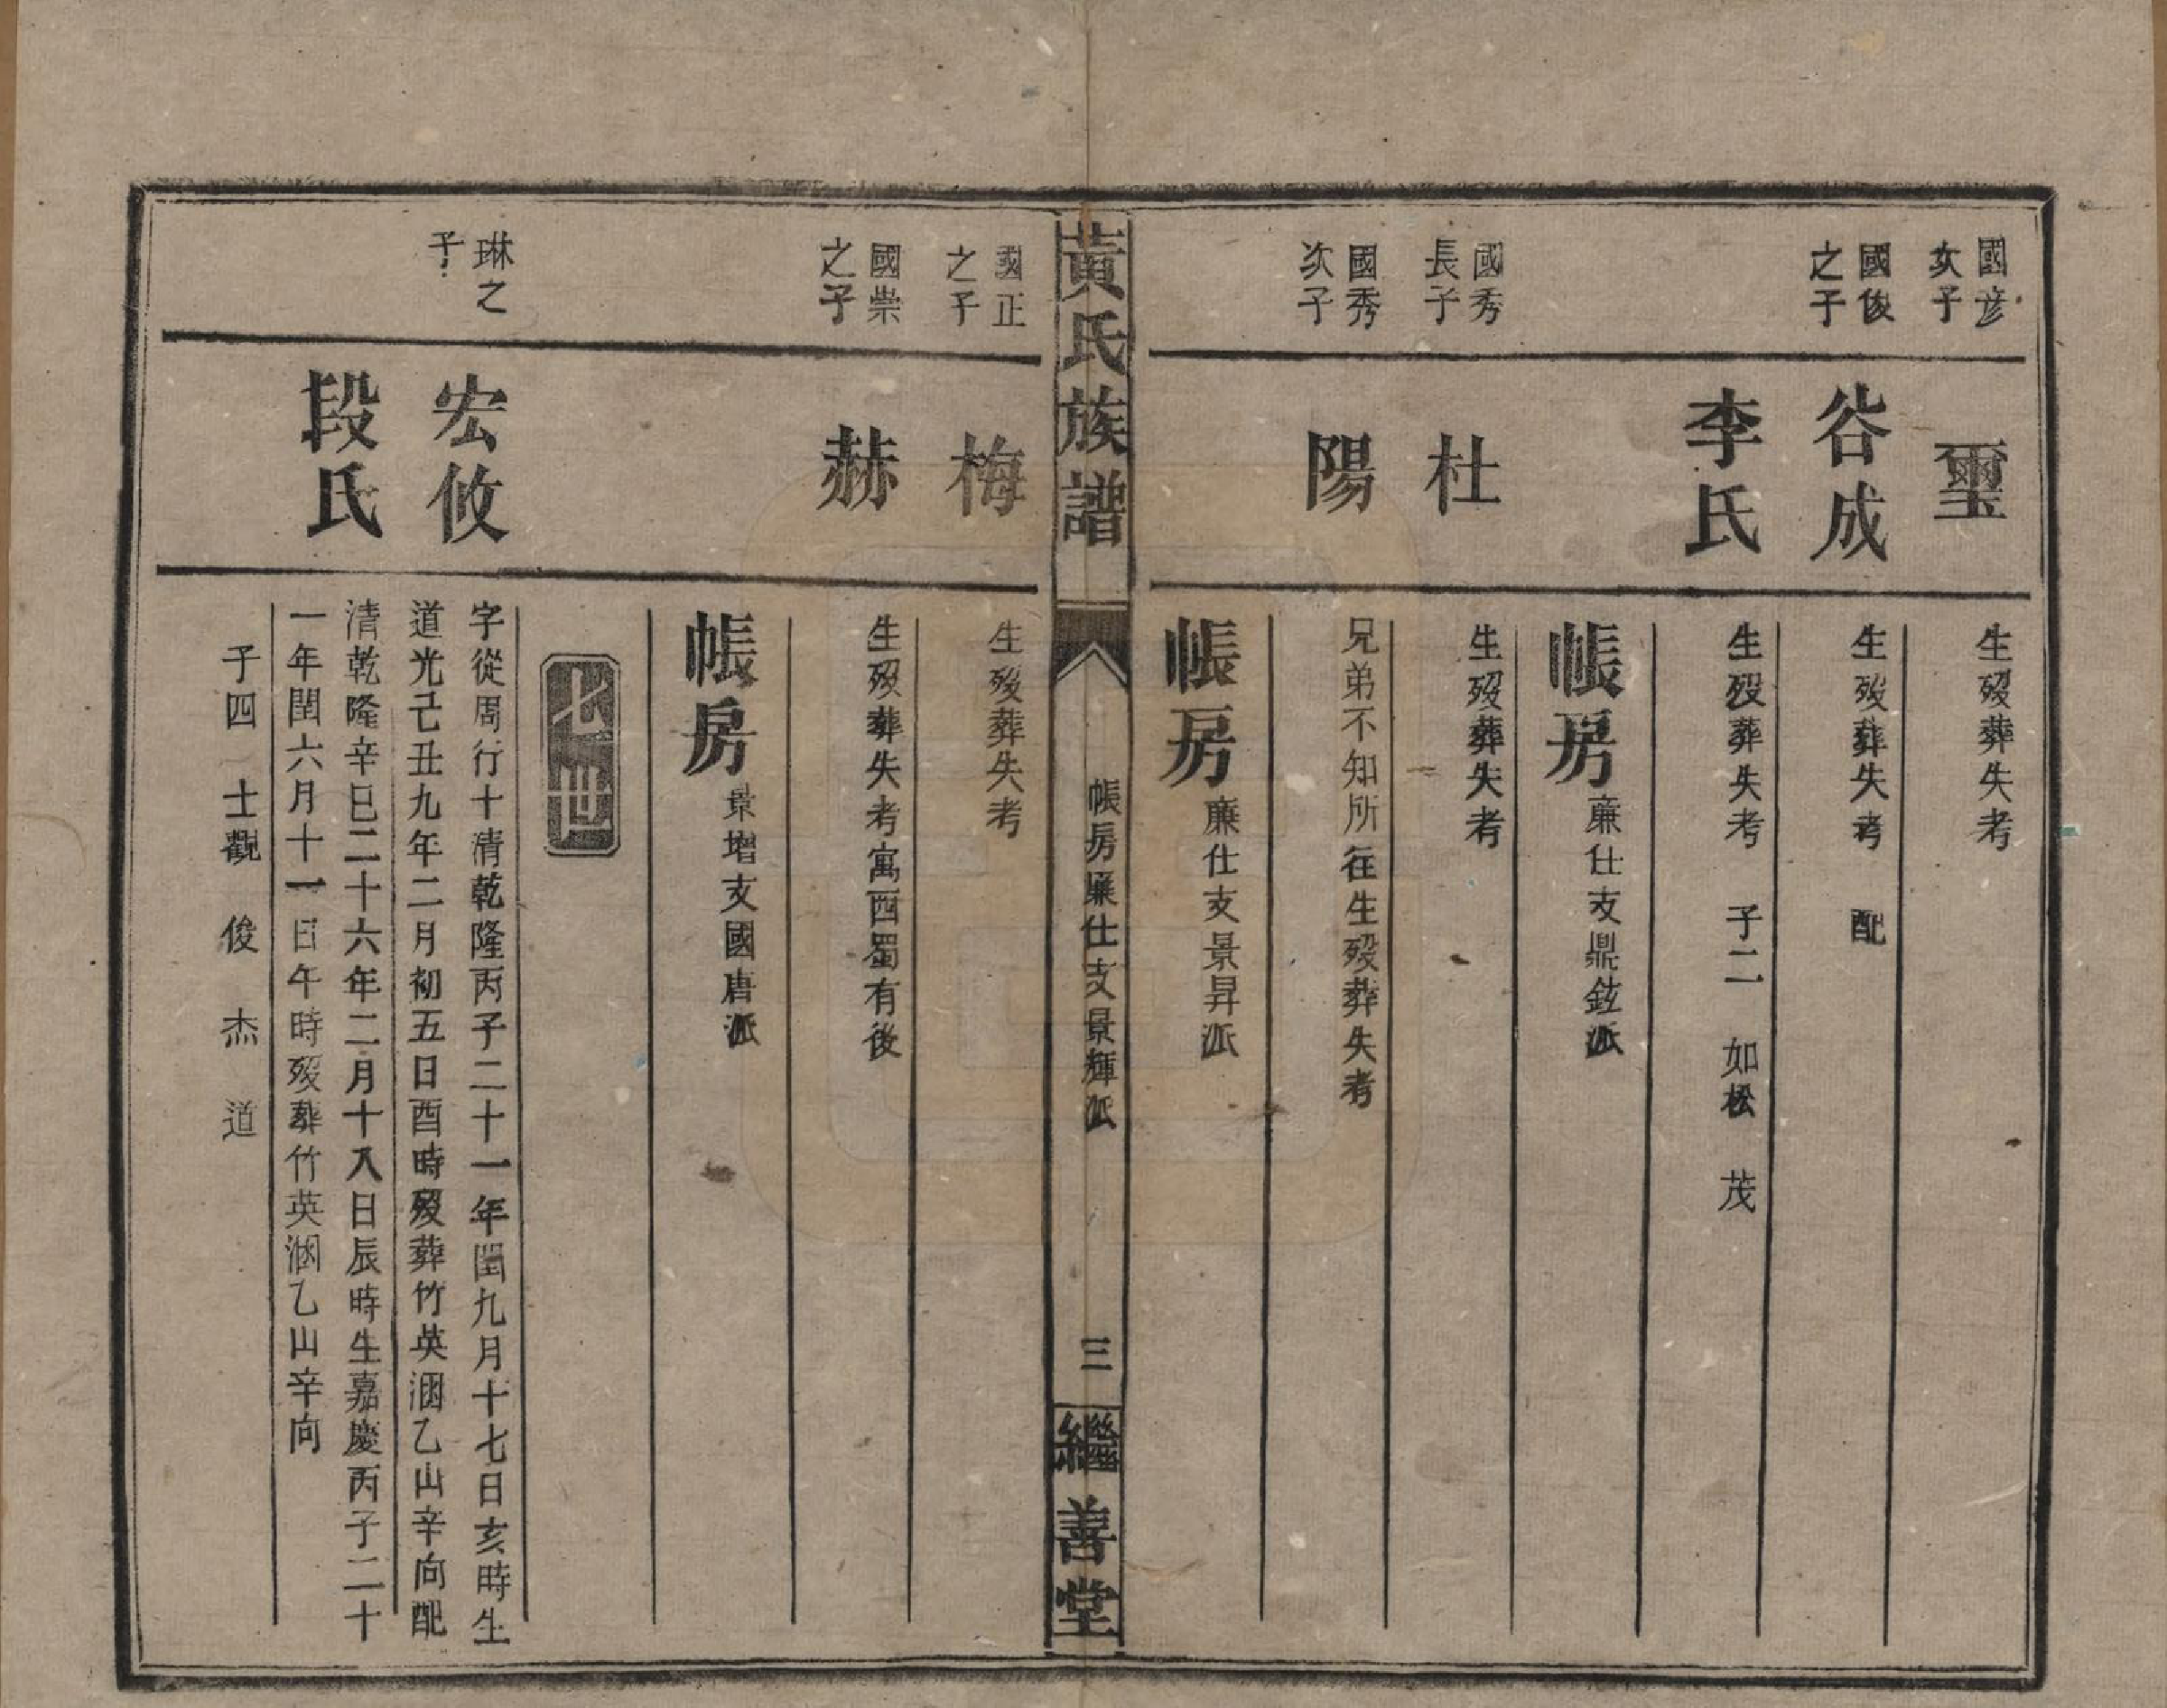 國彦
次子
璽
生歿葬失考
國俊
之子
谷成
生歿葬失考　配
李氏
生歿葬失考　子二　如松　茂
帳房
廉仕支鼎鉉派
國秀
長子
杜
生歿葬失考
國秀
次子
陽
兄弟不知所在生歿葬失考
帳房
廉仕支景昇派
黃氏族譜
帳房廉仕支景輝派
三
繼善堂
國正
之子
梅
生歿葬失考
國崇
之子
赫
生歿葬失考寓西蜀有後
帳房
景增支國唐派
七世
琳之
子
宏攸
字從周行十清乾隆丙子二十一年閏九月十七日亥時生
道光己丑九年二月初五日酉時歿葬竹英溷乙山辛向配
段氏
清乾隆辛巳二十六年二月十八日辰時生嘉慶丙子二十
一年閏六月十一日午時歿葬竹英溷乙山辛向
子四　士觀　俊　杰　道